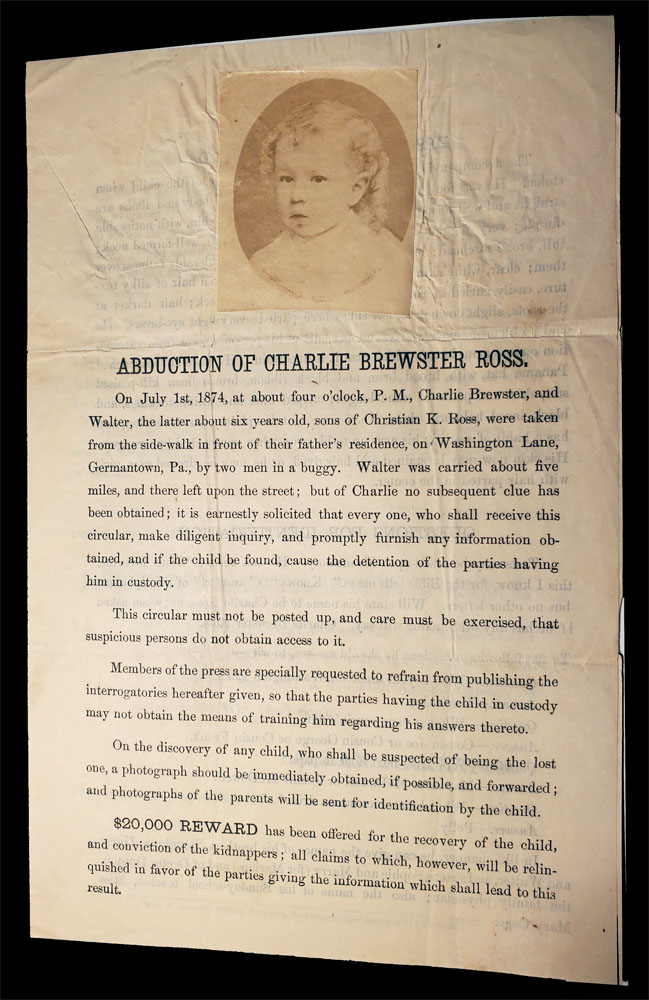 ABDUCTION OF CHARLIE BREWSTER ROSS.
On July 1st, 1874, at about four o'clock, P. M., Charlie Brewster, and
Walter, the latter about six years old, sons of Christian K. Ross, were taken
from the side-walk in front of their father's residence, on Washington Lane,
Germantown, Pa., by two men in a buggy. Walter was carried about five
miles, and there left upon the street; but of Charlie no subsequent clue has
been obtained; it is earnestly solicited that every one, who shall receive this
circular, make diligent inquiry, and promptly furnish any information ob-
tained, and if the child be found, cause the detention of the parties having
him in custody.
This circular must not be posted up, and care must be exercised, that
suspicious persons do not obtain access to it.
Members of the press are specially requested to refrain from publishing the
interrogatories hereafter given, so that the parties having the child in custody
may not obtain the means of training him regarding his answers thereto.
On the discovery of any child, who shall be suspected of being the lost
one, a photograph should be immediately obtained, if possible, and forwarded;
and photographs of the parents will be sent for identification by the child.
$20,000 REWARD has been offered for the recovery of the child,
and conviction of the kidnappers; all claims to which, however, will be relin-
quished in favor of the parties giving the information which shall lead to this
result.